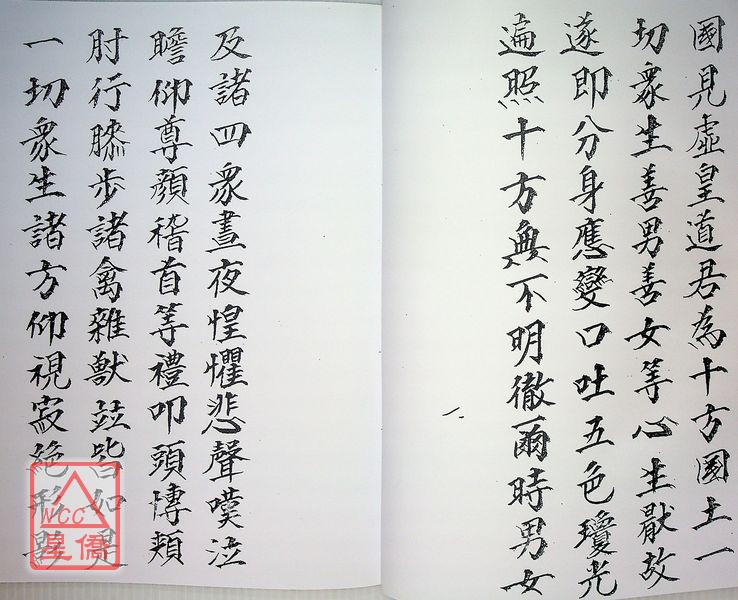 國見虛皇道君為十方國土一
切衆生善男善女等心生厭故
遂即分身應變口吐五色瓊光
遍照十方無不明徹爾時男女
及諸四衆晝夜惶懼悲聲嘆泣
瞻仰尊顏稽首等禮叩頭博頰
肘行膝步諸禽雜獸竝皆如是
一切衆生諸方仰視寂絕形影
WCC
星僑